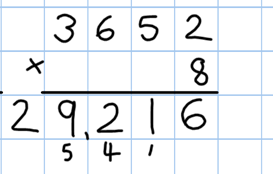 3652
× 8
29,216
5 4 1